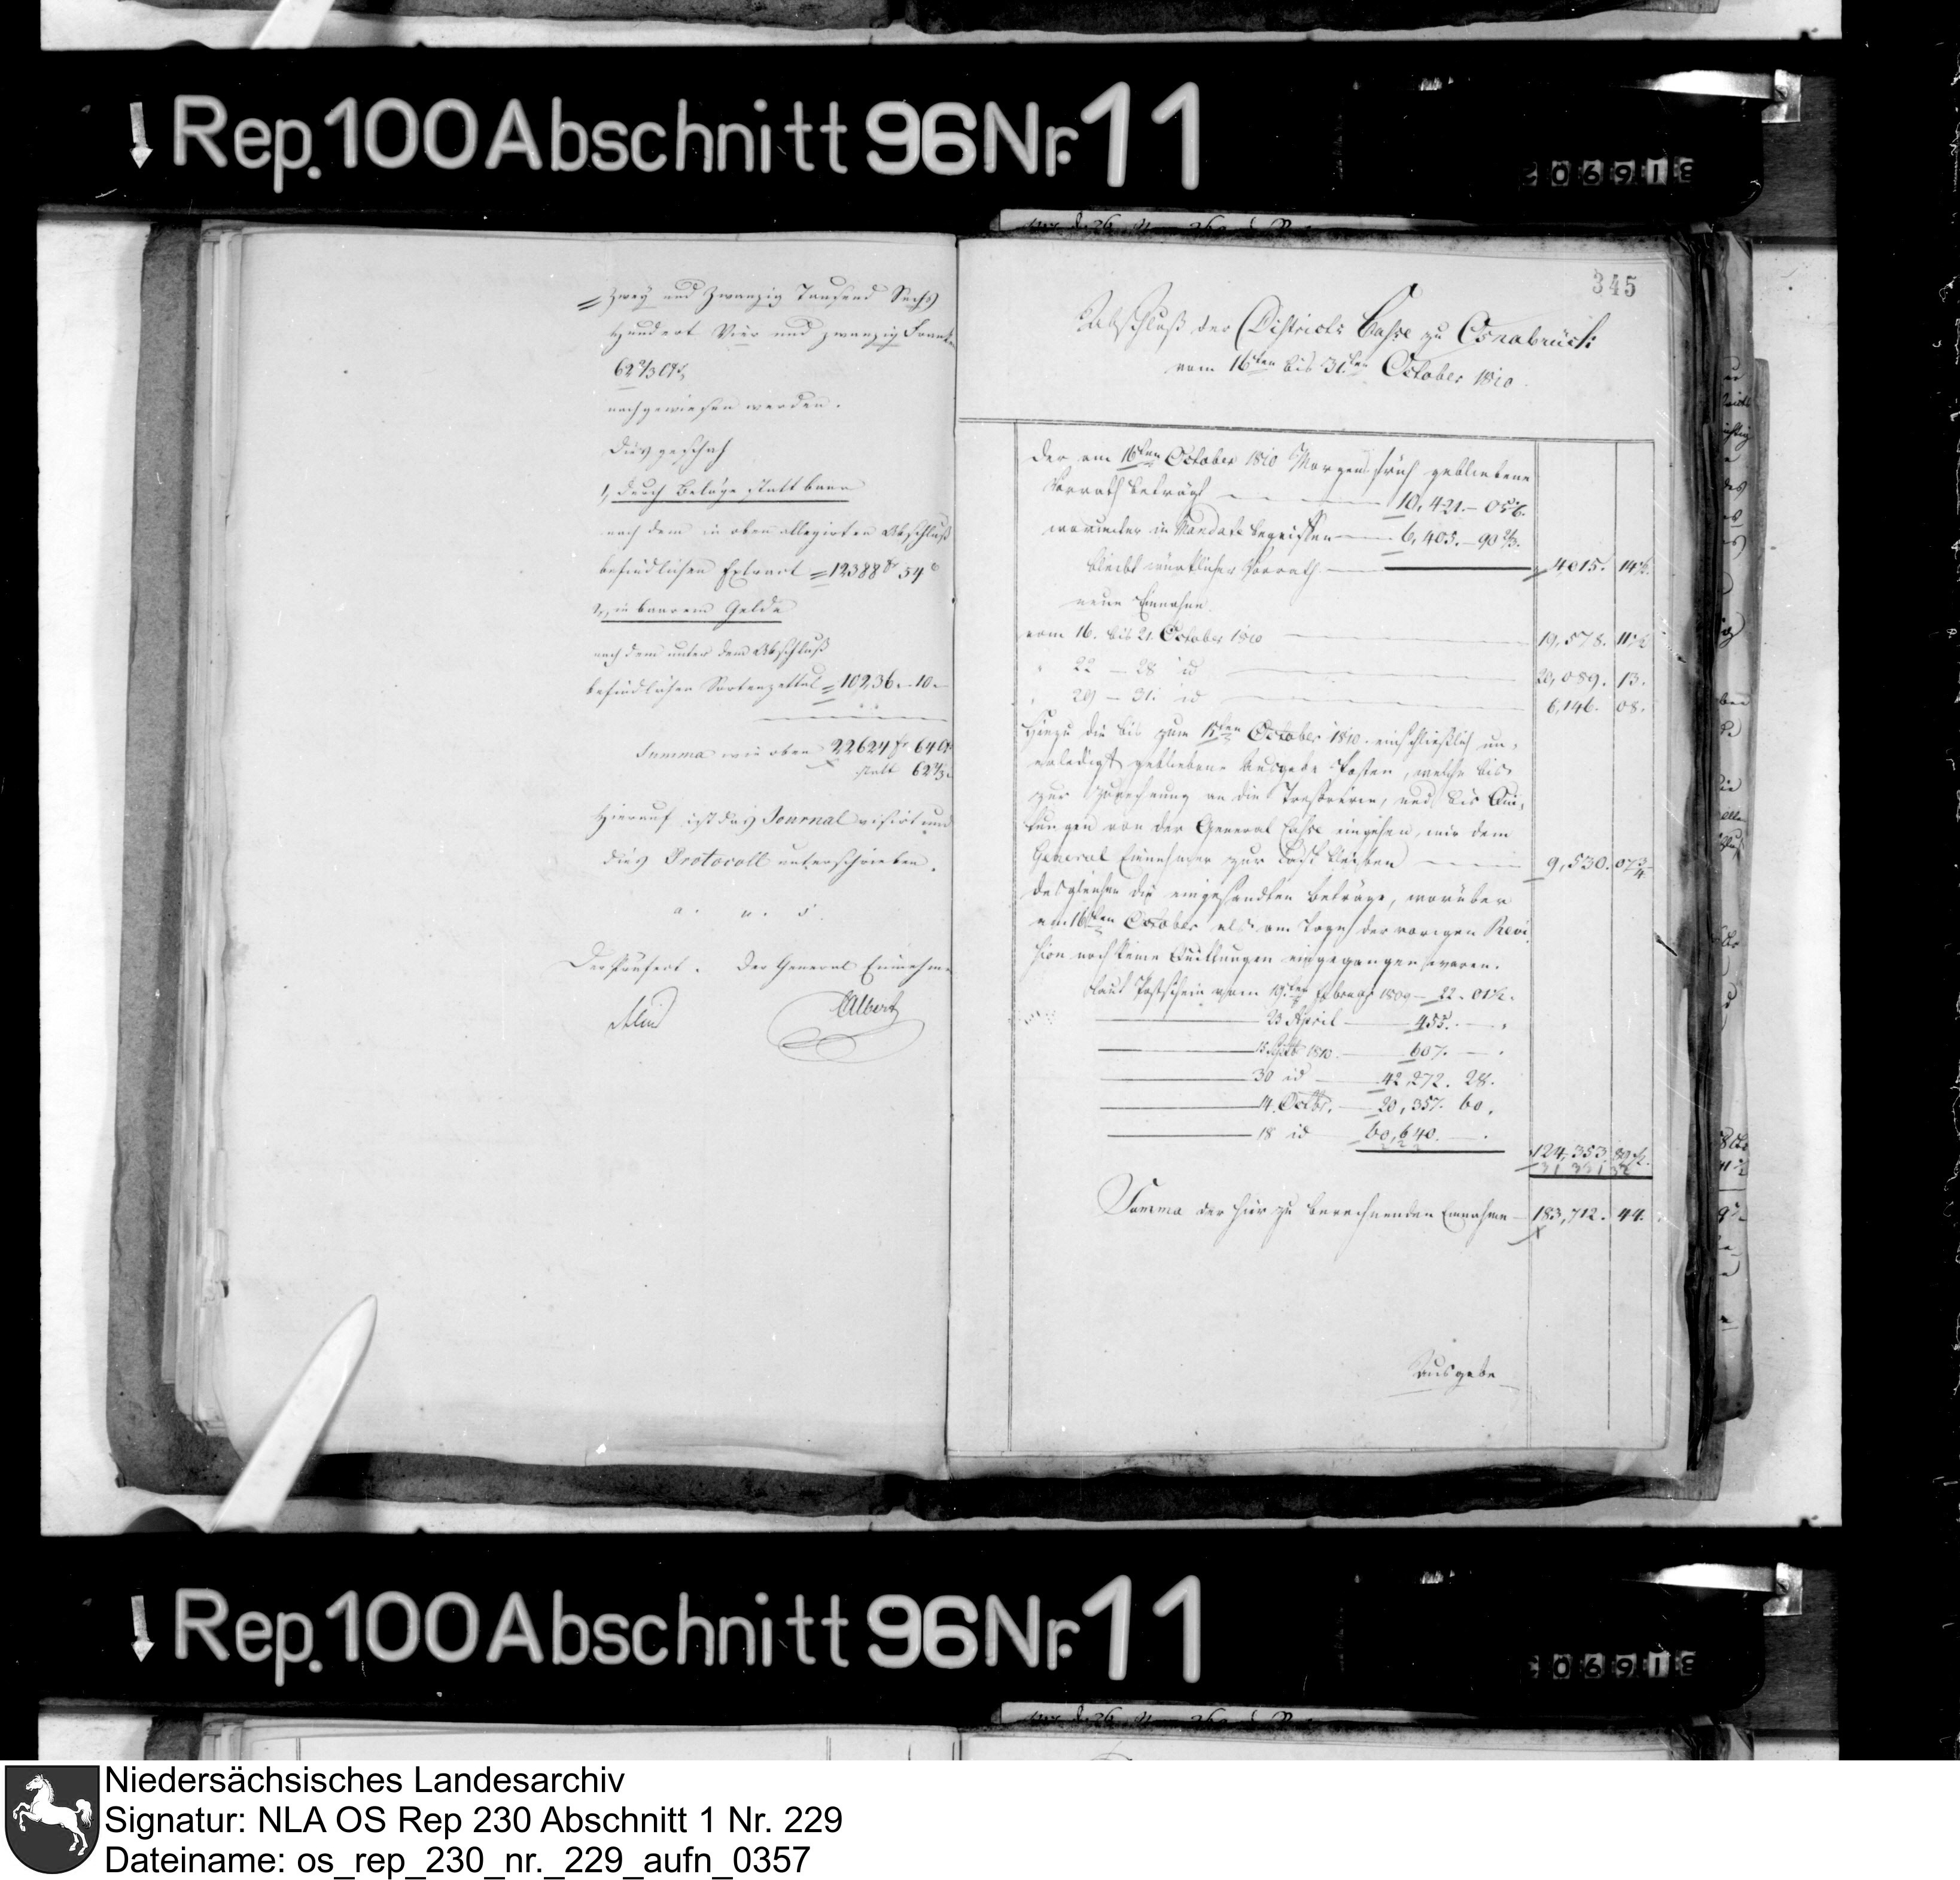 Rep. 100 Abschnitt 96 Nr. 11
Zwey und Zwanzig Tausend Sechs
Hundert Vier und zwanzig Franken
62 2/3 Cts
nachgewiesen werden.
Dies geschah
1, durch Beläge statt baar
nach dem in oben allegirten Abschluß
befindlichen Extract = 12388 fr 54 c
2, in baarem Gelde
nach dem unter dem Abschluß
befindlichen Sortenzettul = 10236. - 10. -
Summa wie oben 22624 fr 64 Ct
statt 62 2/3 c
Hierauf ist das Journal visirt und
dies Protocoll unterschrieben.
a. u. s.
Der Präfect. Der General Einnehmer
Albert
345
Abschluß der Districts Casse zu Osnabrück
vom 16ten bis 31ten October 1810.
Der am 16ten October 1810 Morgens früh gebliebene
Vorrath beträgt 10,421. - 05
worunter in Mandate begriffen 6,405. - 90 2/3.
bleibt würklicher Vorrath 4015. 14
neue Einnahme.
vom 16. bis 21. October 1810 19,578. 11
" 22 - 28 id 20,089. 13.
" 29 - 31. id 6,146. 08.
Hiezu die bis zum 15ten October 1810 einschließlich un-
erledigt gebliebene Ausgabe Posten, welche bis
zur Zurechnung an die Tresorerie, und bis Qui-
tungen von der General Casse eingehen, mir dem
General Einnehmer zur Last bleiben 9,530. 07 3/4
desgleichen die eingesandten Beträge, worüber
am 16ten October als am Tage der vorigen Revi-
sion noch keine Quittungen eingegangen waren.
Laut Postschein vom 19ten Februar 1809 22. 01 1/2.
23 April 455. -
15 1810. 607. - .
30 id 42,272. 28.
14. Octbr. 20,357. 60.
18 id 60,640. - .
124,353. 89 1/2.
Summa der hier zu berechnenden Einnahme 183,712. 44.
Ausgabe
Rep. 100 Abschnitt 96 Nr. 11
Niedersächsisches Landesarchiv
Signatur: NLA OS Rep 230 Abschnitt 1 Nr. 229
Dateiname: os_rep_230_nr._229_aufn_0357